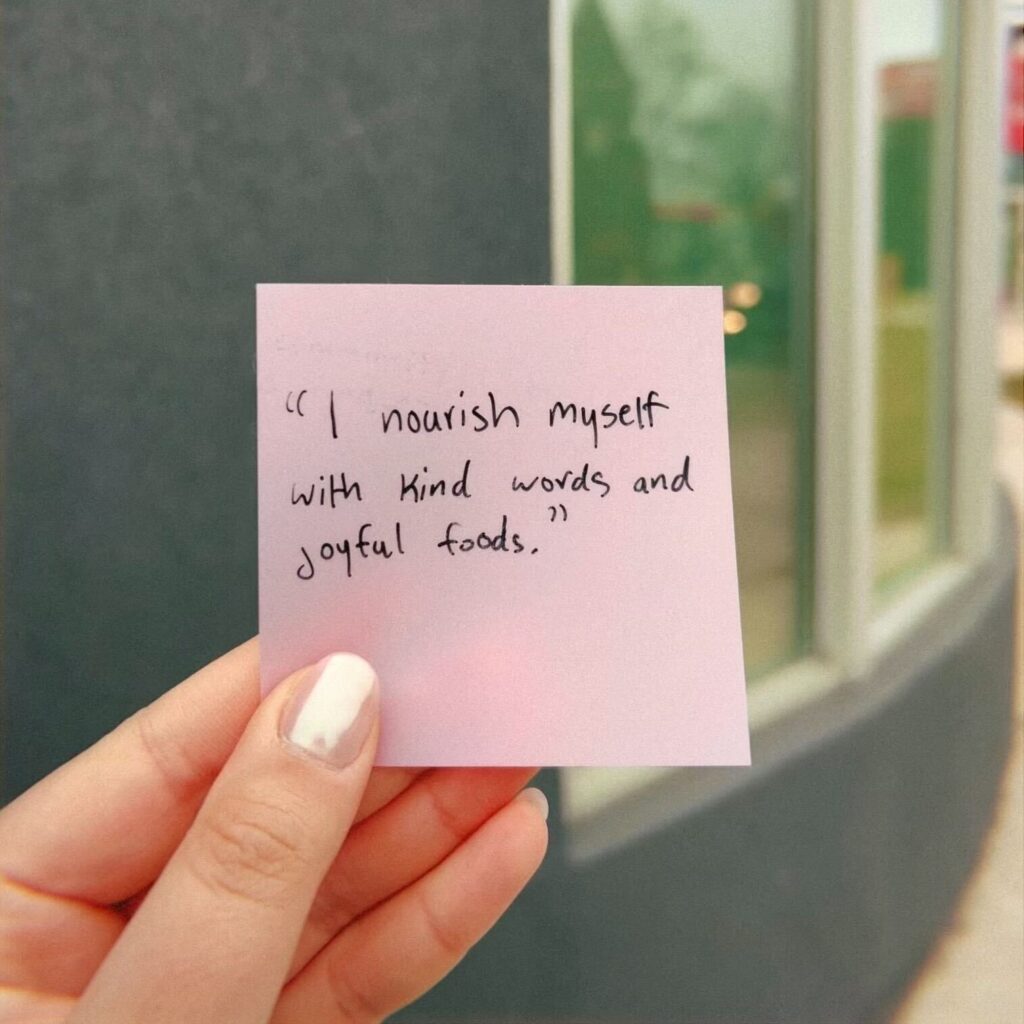 “I nourish myself
with kind words and
joyful foods.”